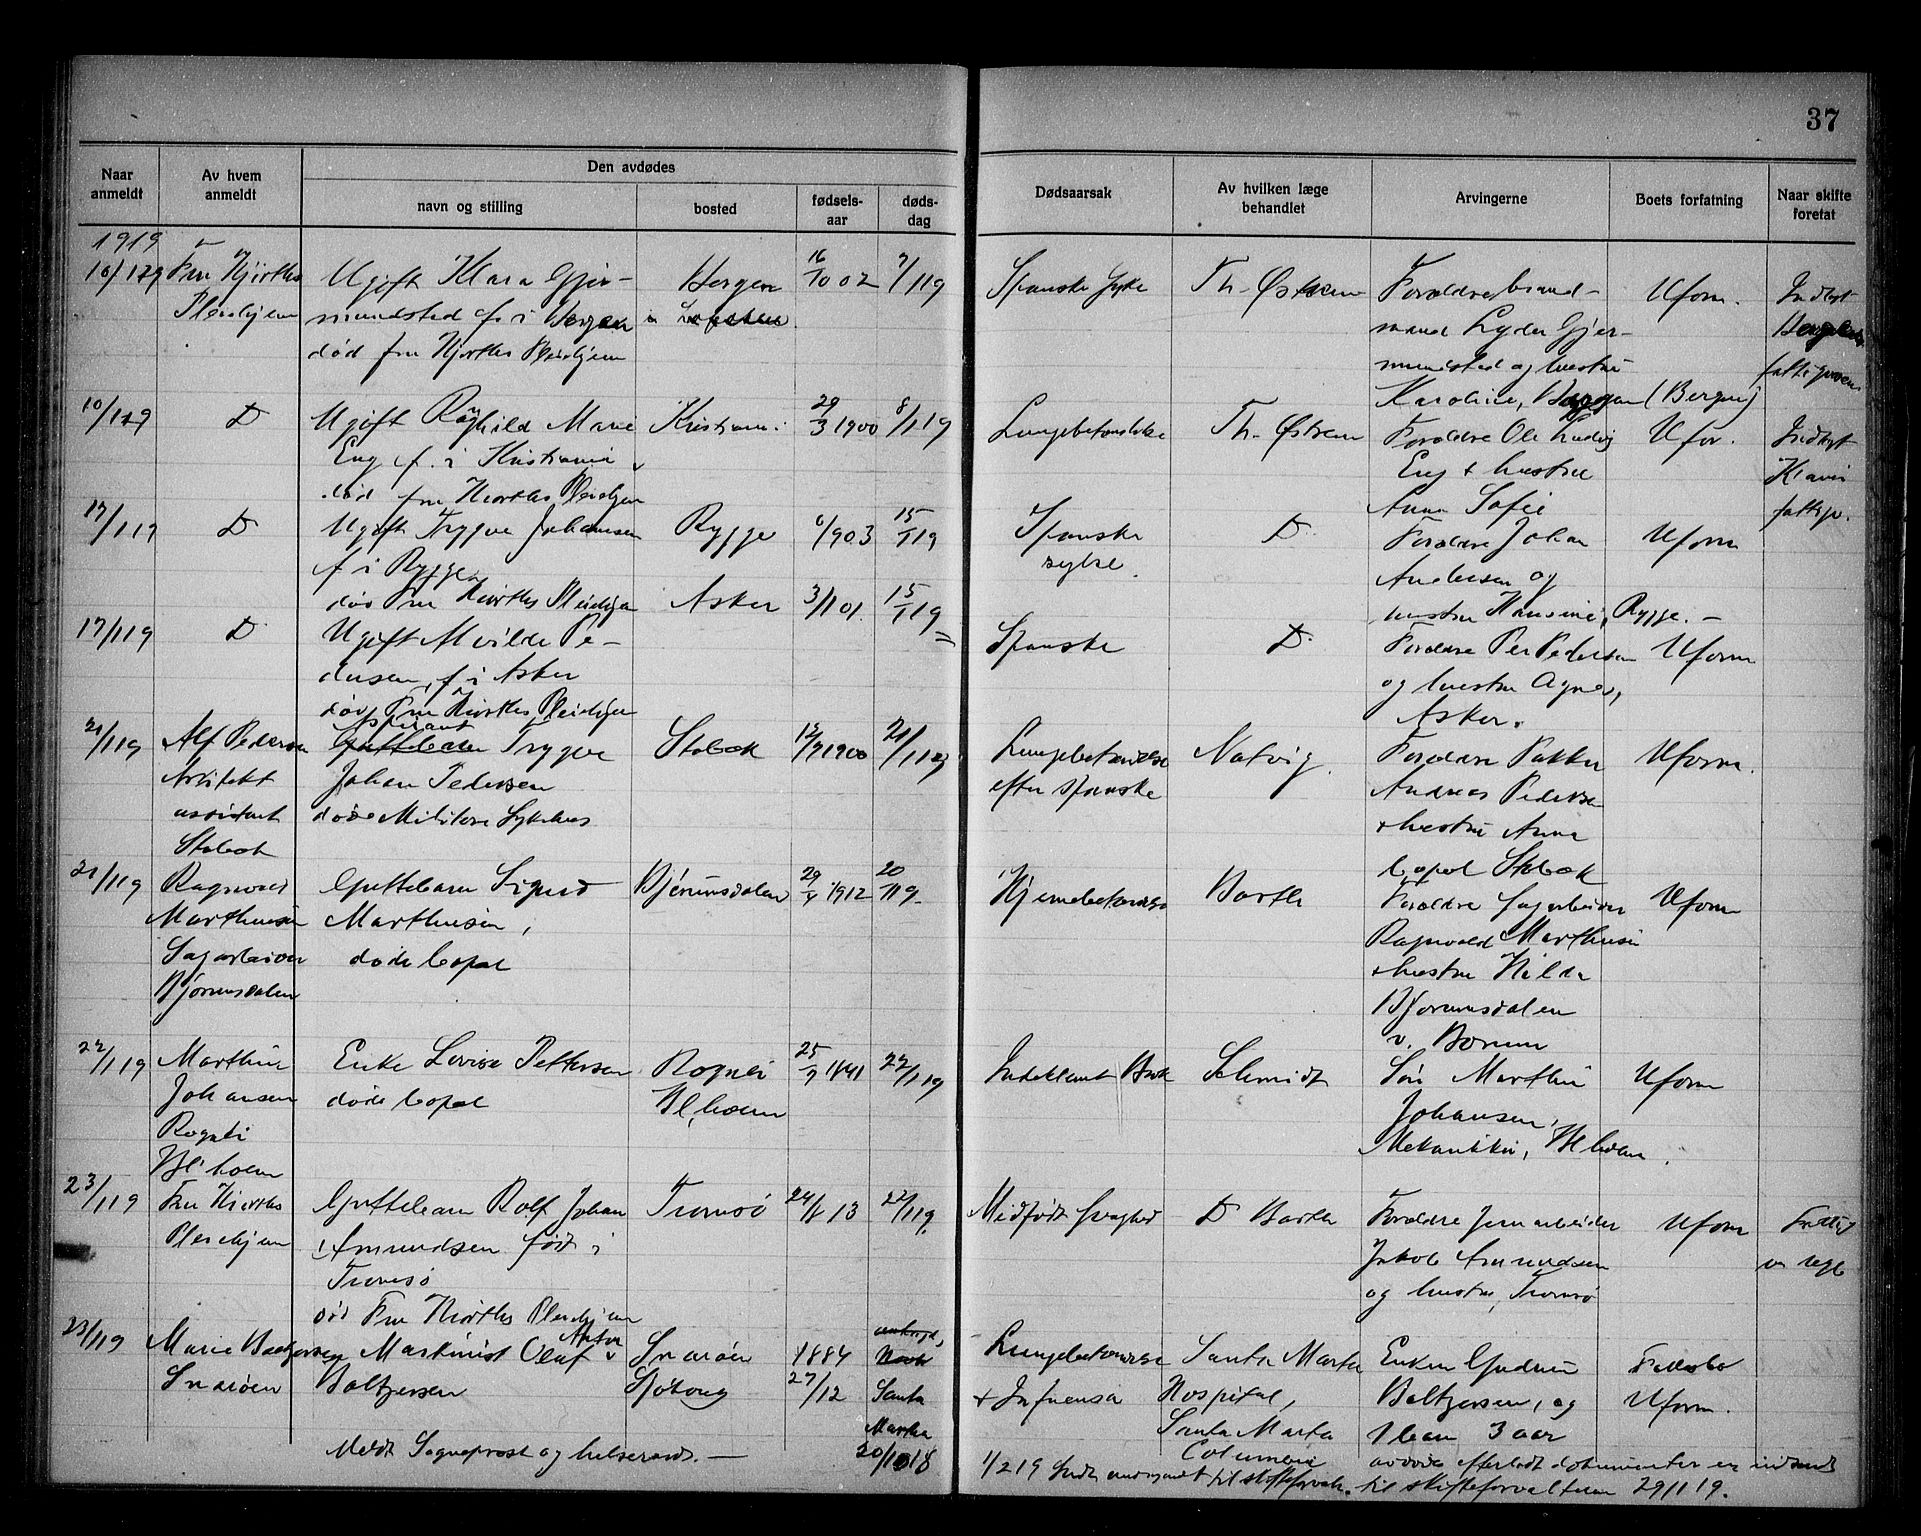 37
Naar anmeldt
Av hvem anmeldt
Den avdødes
navn og stilling
bosted
fødsels-aar
døds-dag
Dødsaarsak
Av hvilken læge behandlet
Arvingerne
Boets forfatning
Naar skifte foretat
1919
Fru Hjorths
Pleiehjem
Ugift Klara Gjer-
mundsted f. i Bergen
død fru Hjorths Pleiehjem
Bergen
16/10 02
7/1 19
Spanske syke
Th. Østrem
Forældre
mand Lyder Gjer-
mundsted og hustru
Karoline, Bergen (Bergen)
Uform.
D
Ugift Raghild Marie
Eng f. i Kristiania
død fru Hjorths Pleiehjem
Kristiania
29/3 1900
8/1 19
Lungebetændelse
Th. Østrem
Forældre Ole Ludvig
Eng + hustru
Anna Sofie
Ufor.
17/1 19
D
Ugift Trygve Johansen
f i Rygge
død Fru Hjorths Pleiehjem
Rygge
15/1 19
Spanske
syke.
D
Forældre Johan
Andersen og
hustru Hansine, Rygge. —
Uform
17/1 19
D
Ugift Milda Pe-
dersen, f i Asker
død Fru Hjorths Pleiehjem
Asker
3/1 01.
15/1 19
Spanske
D
Forældre Per Pedersen
og hustru Agnes,
Asker.
Uform
21/1 19
Alf Pedersen
Arkitekt
assistent
Stabæk
Aspirant
Guttebarn Trygve
Johan Pedersen
døde Militære Sykehus
Stabæk
1900
21/1 19
Lungebetændelse
efter spanske
Natvig.
Forældre Pakker
Andreas Pedersen
+ hustru Anna
bopel Stabæk
Uform.
21/1 19
Ragnvald
Marthinsen
Sagarbeider
Bjørumsdalen
Guttebarn Sigurd
Marthinsen,
døde bopæl
Bjørumsdalen
1912
20/1 19.
Hjernebetændelse
Barth
Forældre Sagarbeider
Ragnvald Marthinsen
+ hustru Hilda
Bjørumsdalen
v. Bærum
Uform
22/1 19
Marthin
Johansen
Enke Lovise Pettersen
døde bopæl
25/9 1841
22/1 19
Indeklemt Brok
Schmidt
Søn Marthin
Johansen,
Mekaniker,
Uform
23/1 19
Fru Hjorths
Pleiehjem
Guttebarn Rolf Johan
Amundsen født i
Tromsø
død Fru Hjorths Pleiehjem
Tromsø
24/8 13
22/1 19
Medfødt svaghed
D Barth
Forældre Jernarbeider
Jakob Amundsen
og hustru, Tromsø
Uform
23/1 19
Marie Baltzersen
Snarøen
Maskinist Olaf Anton
Baltzersen
Snarøen
Sjøborg
1884
27/12
Santa
Marta
20/10 18
Lungebetændelse
+ Influensa
Santa Marta
Hospital,
Santa Marta
Columbia
Enken Gudrun
Baltzersen, og
1 barn 3 aar
Fællesbo
Uform.
Meldt Sogneprest og helseraad. —
avdødes efterladte dokumenter er indsendt
til skifteforvalteren 29/1 19.